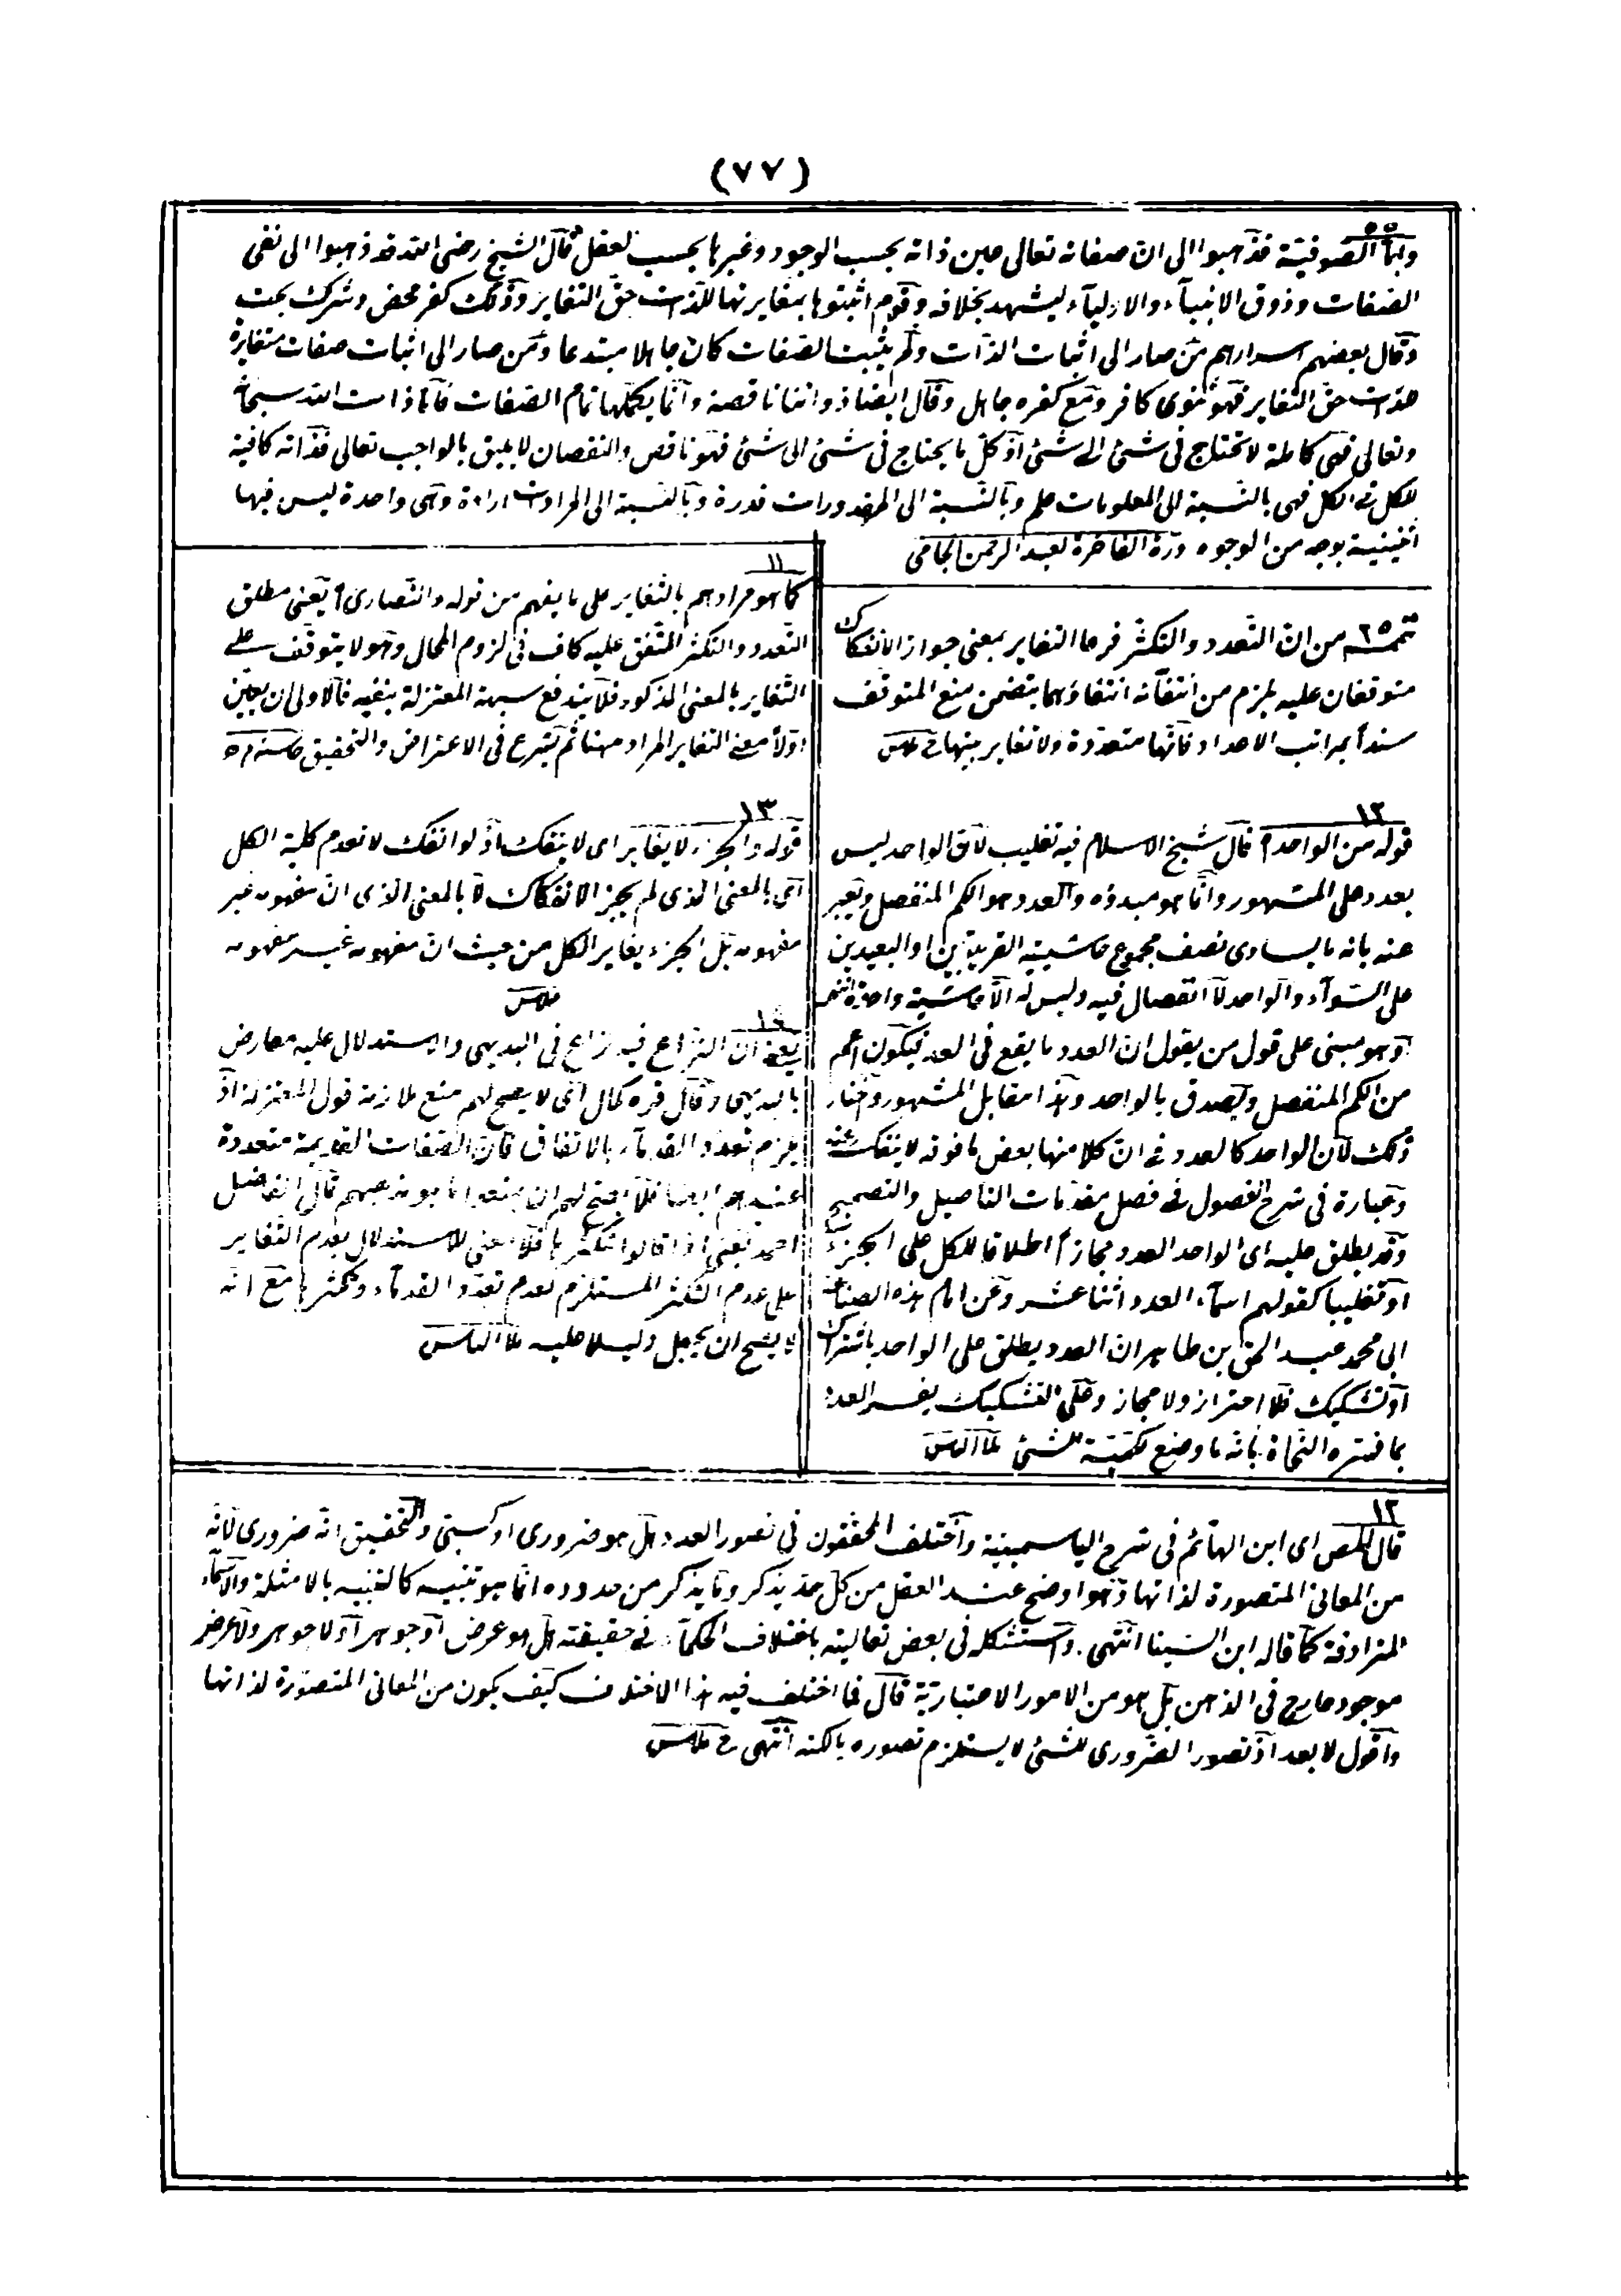 (٧٧)
وأما الصوفية فذهبوا الى ان صفاته تعالى عين ذاته بحسب الوجود وغيرها بحسب العقل قال الشيخ رضى الله قد ذهبوا الى نفى
الصفات وذوق الانبيآء والاوليآء ليشهد بخلافه وقوم اثبتوها بمغايرتها للذات حق التغاير وذلك كفر محض وشرك بحت
وقال بعضهم اسرارهم من صار الى اثبات الذات ولم يثبت الصفات كان جاهلا مبتدعا ومن صار الى اثبات صفات متغايرة
حق التغاير فهو ثنوى كافر ومع كفره جاهل وقال ايضا ذواتنا ناقصة وانما يكملها تمام الصفات فاما ذات الله سبحانه
وتعالى فهى كاملة لا تحتاج فى شئ الى شئ اذ كل ما يحتاج فى شئ الى شئ فهو ناقص والنقصان لا يليق بالواجب تعالى فذاته كافية
للكل فى الكل فهى بالنسبة الى المعلومات علم وبالنسبة الى المقدورات قدرة وبالنسبة الى المرادات ارادة وهى واحدة ليس فيها
اثنينية بوجه من الوجوه درة الفاخرة لعبد الرحمن الجامى
تتمة ٢٥ من ان التعدد والتكثر فرعا التغاير بمعنى جواز الانفكاك
متوقفان عليه يلزم من انتفآئه انتفاؤهما يتضمن منع المتوقف
سندا بمراتب الاعداد فانها متعددة ولا تغاير بينها ح
١٢
قوله من الواحد ا قال شيخ الاسلام فيه تغليب لان الواحد ليس
بعدد على المشهور وانما هو مبدؤه والعدد هو الكم المنفصل ويعبر
عنه بانه ما يساوى نصف مجموع حاشيتيه القريبتين او البعيدين
على السوآء والواحد لا انفصال فيه وليس له الا حاشية واحدة انتهى
او هو مبنى على قول من يقول ان العدد ما يقع فى العد فيكون اعم
من الكم المنفصل ويصدق بالواحد وهذا مقابل المشهور واختار
ذلك لان الواحد كالعدد فى ان كلا منها بعض ما فوقه لا ينفك عنه
وعبارة فى شرح الفصول فى فصل مقدمات التاصيل والتصحيح
وقد يطلق عليه اى الواحد العدد مجازا اطلاقا للكل على الجزء
او تغليبا كقولهم اسمآء العدد اثنا عشر وعن امام هذه الصناعة
ابى محمد عبد الحق بن طاهر ان العدد يطلق على الواحد باشتراك
او تشكيك فلا احتراز ولا مجاز وعلى التشكيك يفسر العدد
بما فسره النحاة بانه ما وضع لكمية الشئ
١١
كما هو مرادهم بالتغاير على ما يفهم من قوله والنصارى ا يعنى مطلق
التعدد والتكثر المتفق عليه كاف فى لزوم المحال وهو لا يتوقف على
التغاير بالمعنى المذكور فلا يندفع شبهة المعتزلة بنفيه فالاولى ان يبين
اولا معنى التغاير المراد ههنا ثم يشرع فى الاعتراض والتحقيق
١٣
قوله والجزء لا يغاير اى لا ينفك اذ لو انفك لانعدم كلية الكل
اى بالمعنى الذى لم يجز الانفكاك لا بالمعنى الذى ان مفهومه غير
مفهومه بل الجزء يغاير الكل من حيث ان مفهومه غير مفهومه
يعنى ان النزاع فيه نزاع فى البديهى والاستدلال عليه معارض
بالبديهى وقال قره كمال اى لا يصح لهم منع ملازمة قول المعتزلة اذ
يلزم تعدد القدمآء بالاتفاق فان الصفات القديمة متعددة
عندهم ايضا فلا يصح لهم ان يمنعوا ما هو مذهبهم قال الفاضل
احمد يعنى اذا قالوا بتكثرها فلا معنى للاستدلال بعدم التغاير
على عدم التكثر المستلزم لعدم تعدد القدمآء وتكثرها مع انه
لا يصح ان يجعل دليلا عليه
١٢
قال المص اى ابن الهائم فى شرح الياسمينية واختلف المحققون فى تصور العدد هل هو ضرورى او كسبى والتحقيق انه ضرورى لانه
من المعانى المتصورة لذاتها وهو اوضح عند العقل من كل حد يذكر وما يذكر من حدوده انما هو تنبيه كالتنبيه بالامثلة والاسمآء
المترادفة كما قاله ابن السينا انتهى . واستشكله فى بعض تعاليقه باختلاف الحكمآء فى حقيقته هل هو عرض او جوهر او لا جوهر ولا عرض
موجود خارج فى الذهن بل هو من الامور الاعتبارية قال فما اختلف فيه هذا الاختلاف كيف يكون من المعانى المتصورة لذاتها
واقول لا بعد اذ تصور الضرورى للشئ لا يستلزم تصوره بالكنه انتهى ح